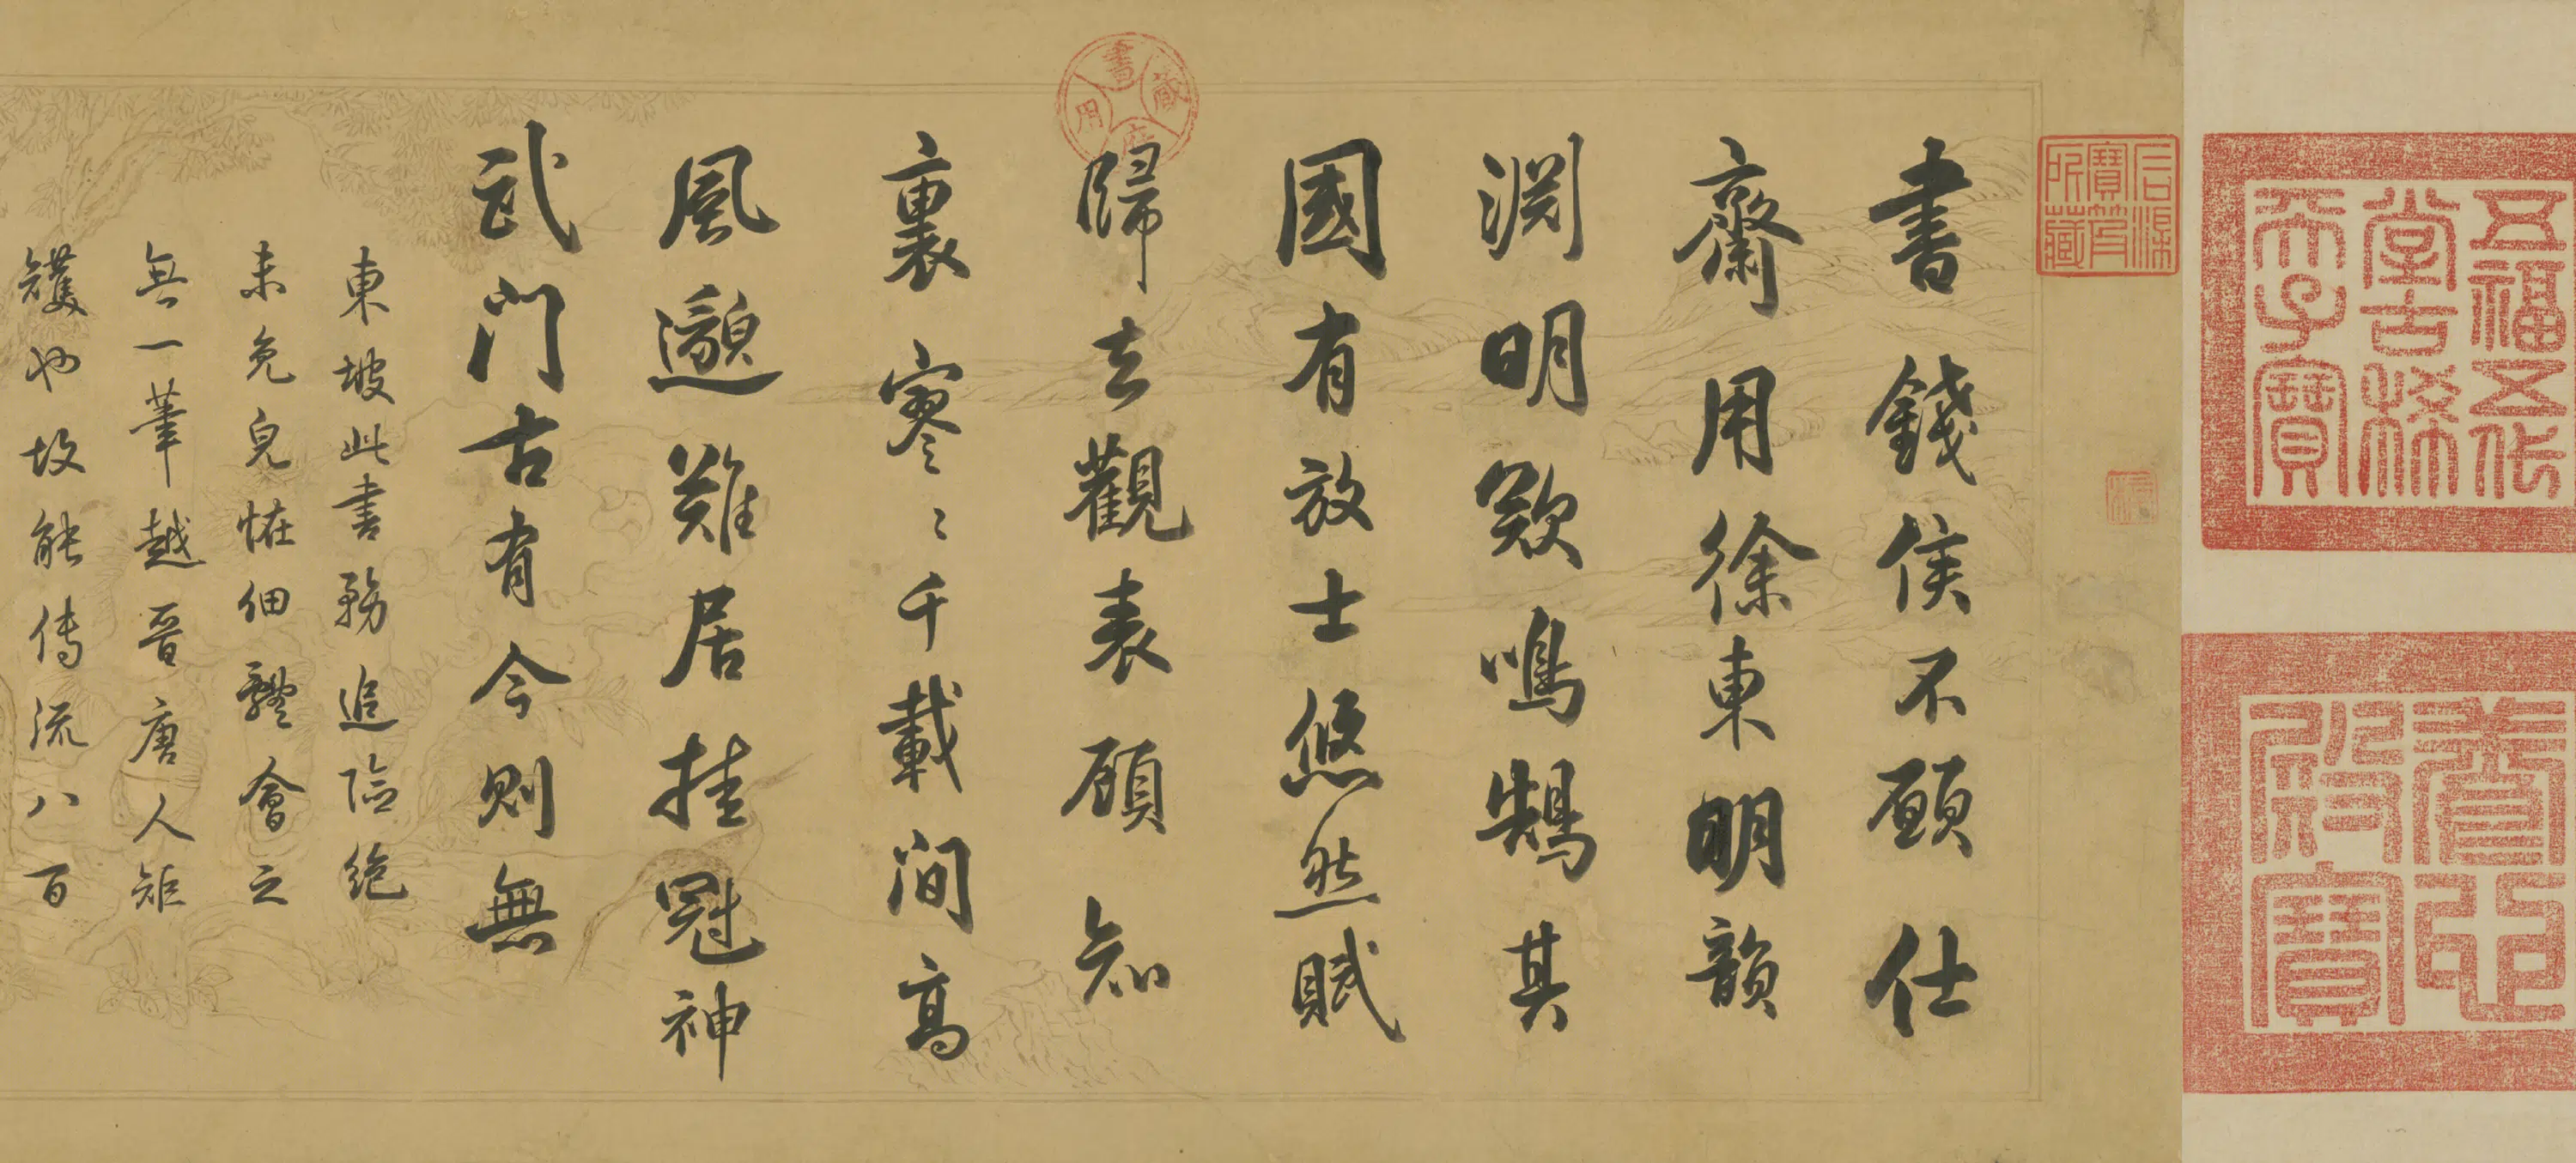 五福五代
堂古稀
天子寶
養心
殿寶
石渠
寶笈
所藏
書錢侯不願仕
齋用徐東明韻
淵明歎鳴鵠其
國有放士悠然賦
歸去觀表願知
裏寥〻千載間高
風邈難居挂冠神
武門古有今則無
東坡此書務追險絕
未免皃恠細軆會之
無一筆越晉唐人矩
矱也故能傳流八百